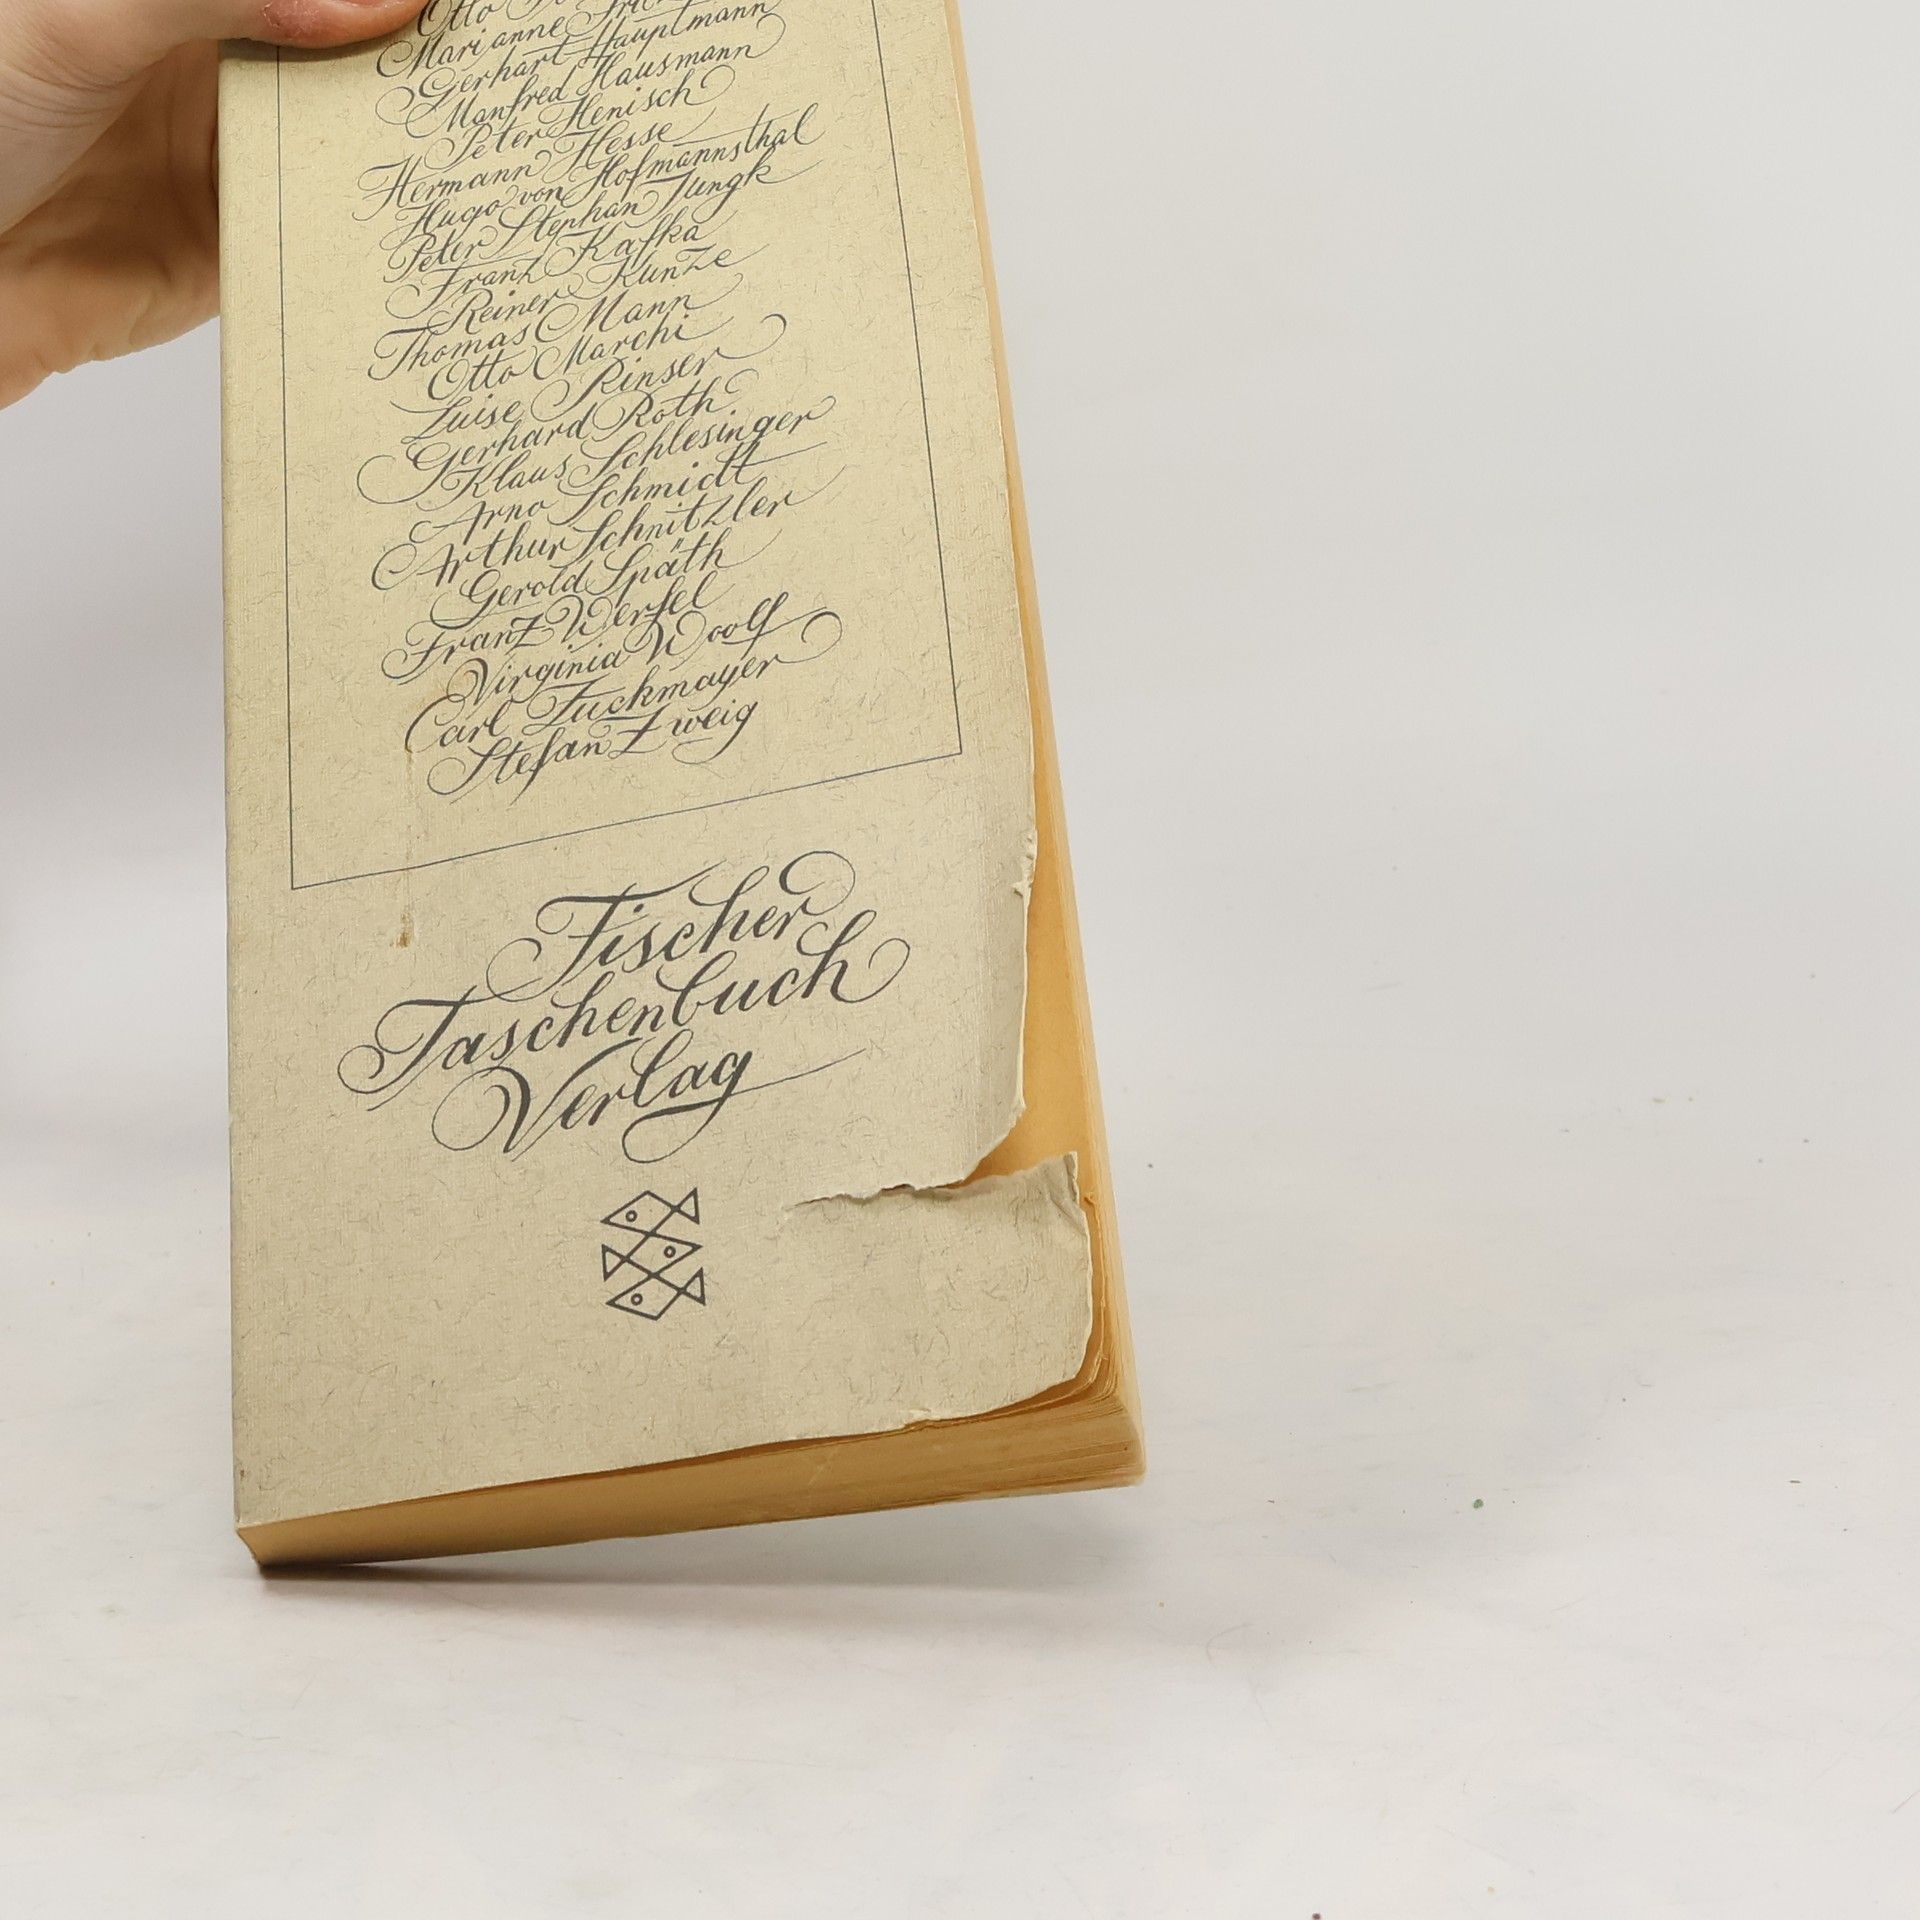 Otto
Marianne
Gerhart Hauptmann
Manfred Hausmann
Peter Henisch
Hermann Hesse
Hugo von Hofmannsthal
Peter Stephan Jungk
Franz Kafka
Reiner Kunze
Thomas Mann
Otto Marchi
Luise Rinser
Gerhard Roth
Klaus Schlesinger
Arno Schmidt
Arthur Schnitzler
Gerold Späth
Franz Werfel
Virginia Woolf
Carl Zuckmayer
Stefan Zweig
Fischer
Taschenbuch
Verlag